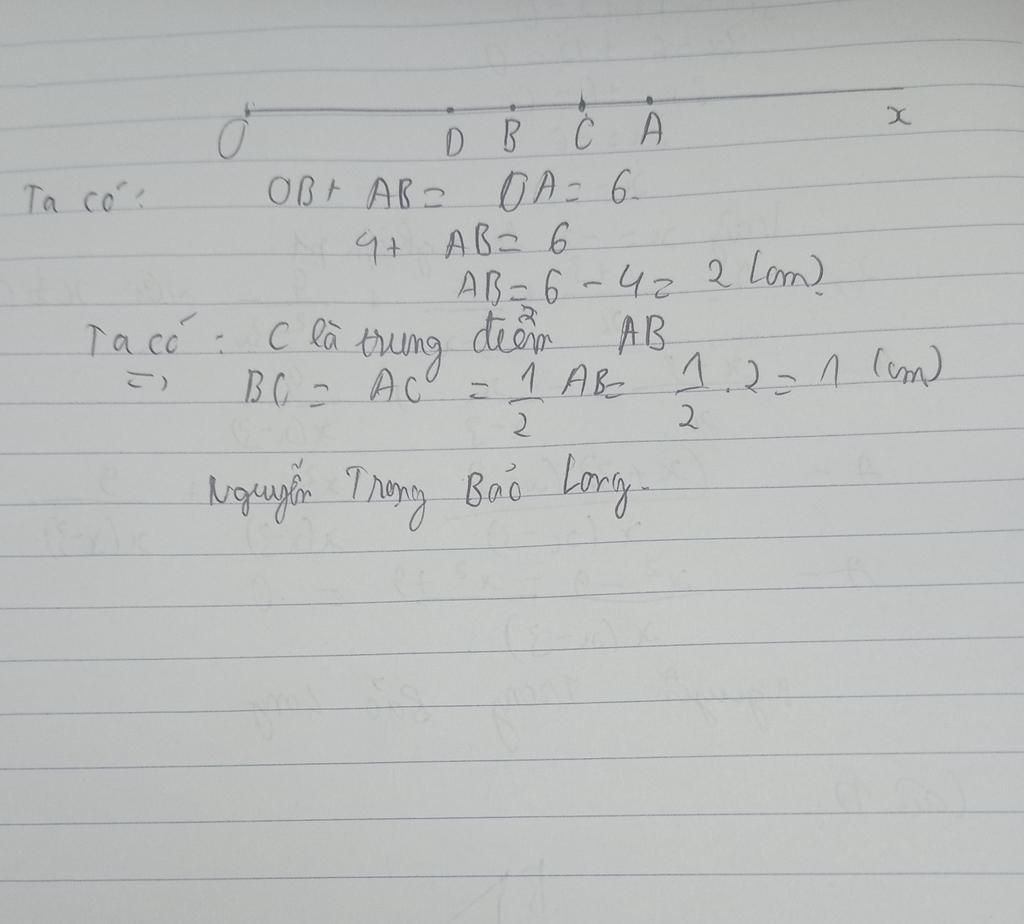 O D B C A x
Ta có: OB + AB = OA = 6.
4 + AB = 6
AB = 6 - 4 = 2 (cm).
Ta có: C là trung điểm AB
=> BC = AC = 1/2 AB = 1/2 . 2 = 1 (cm)
Nguyễn Trọng Bảo Long.